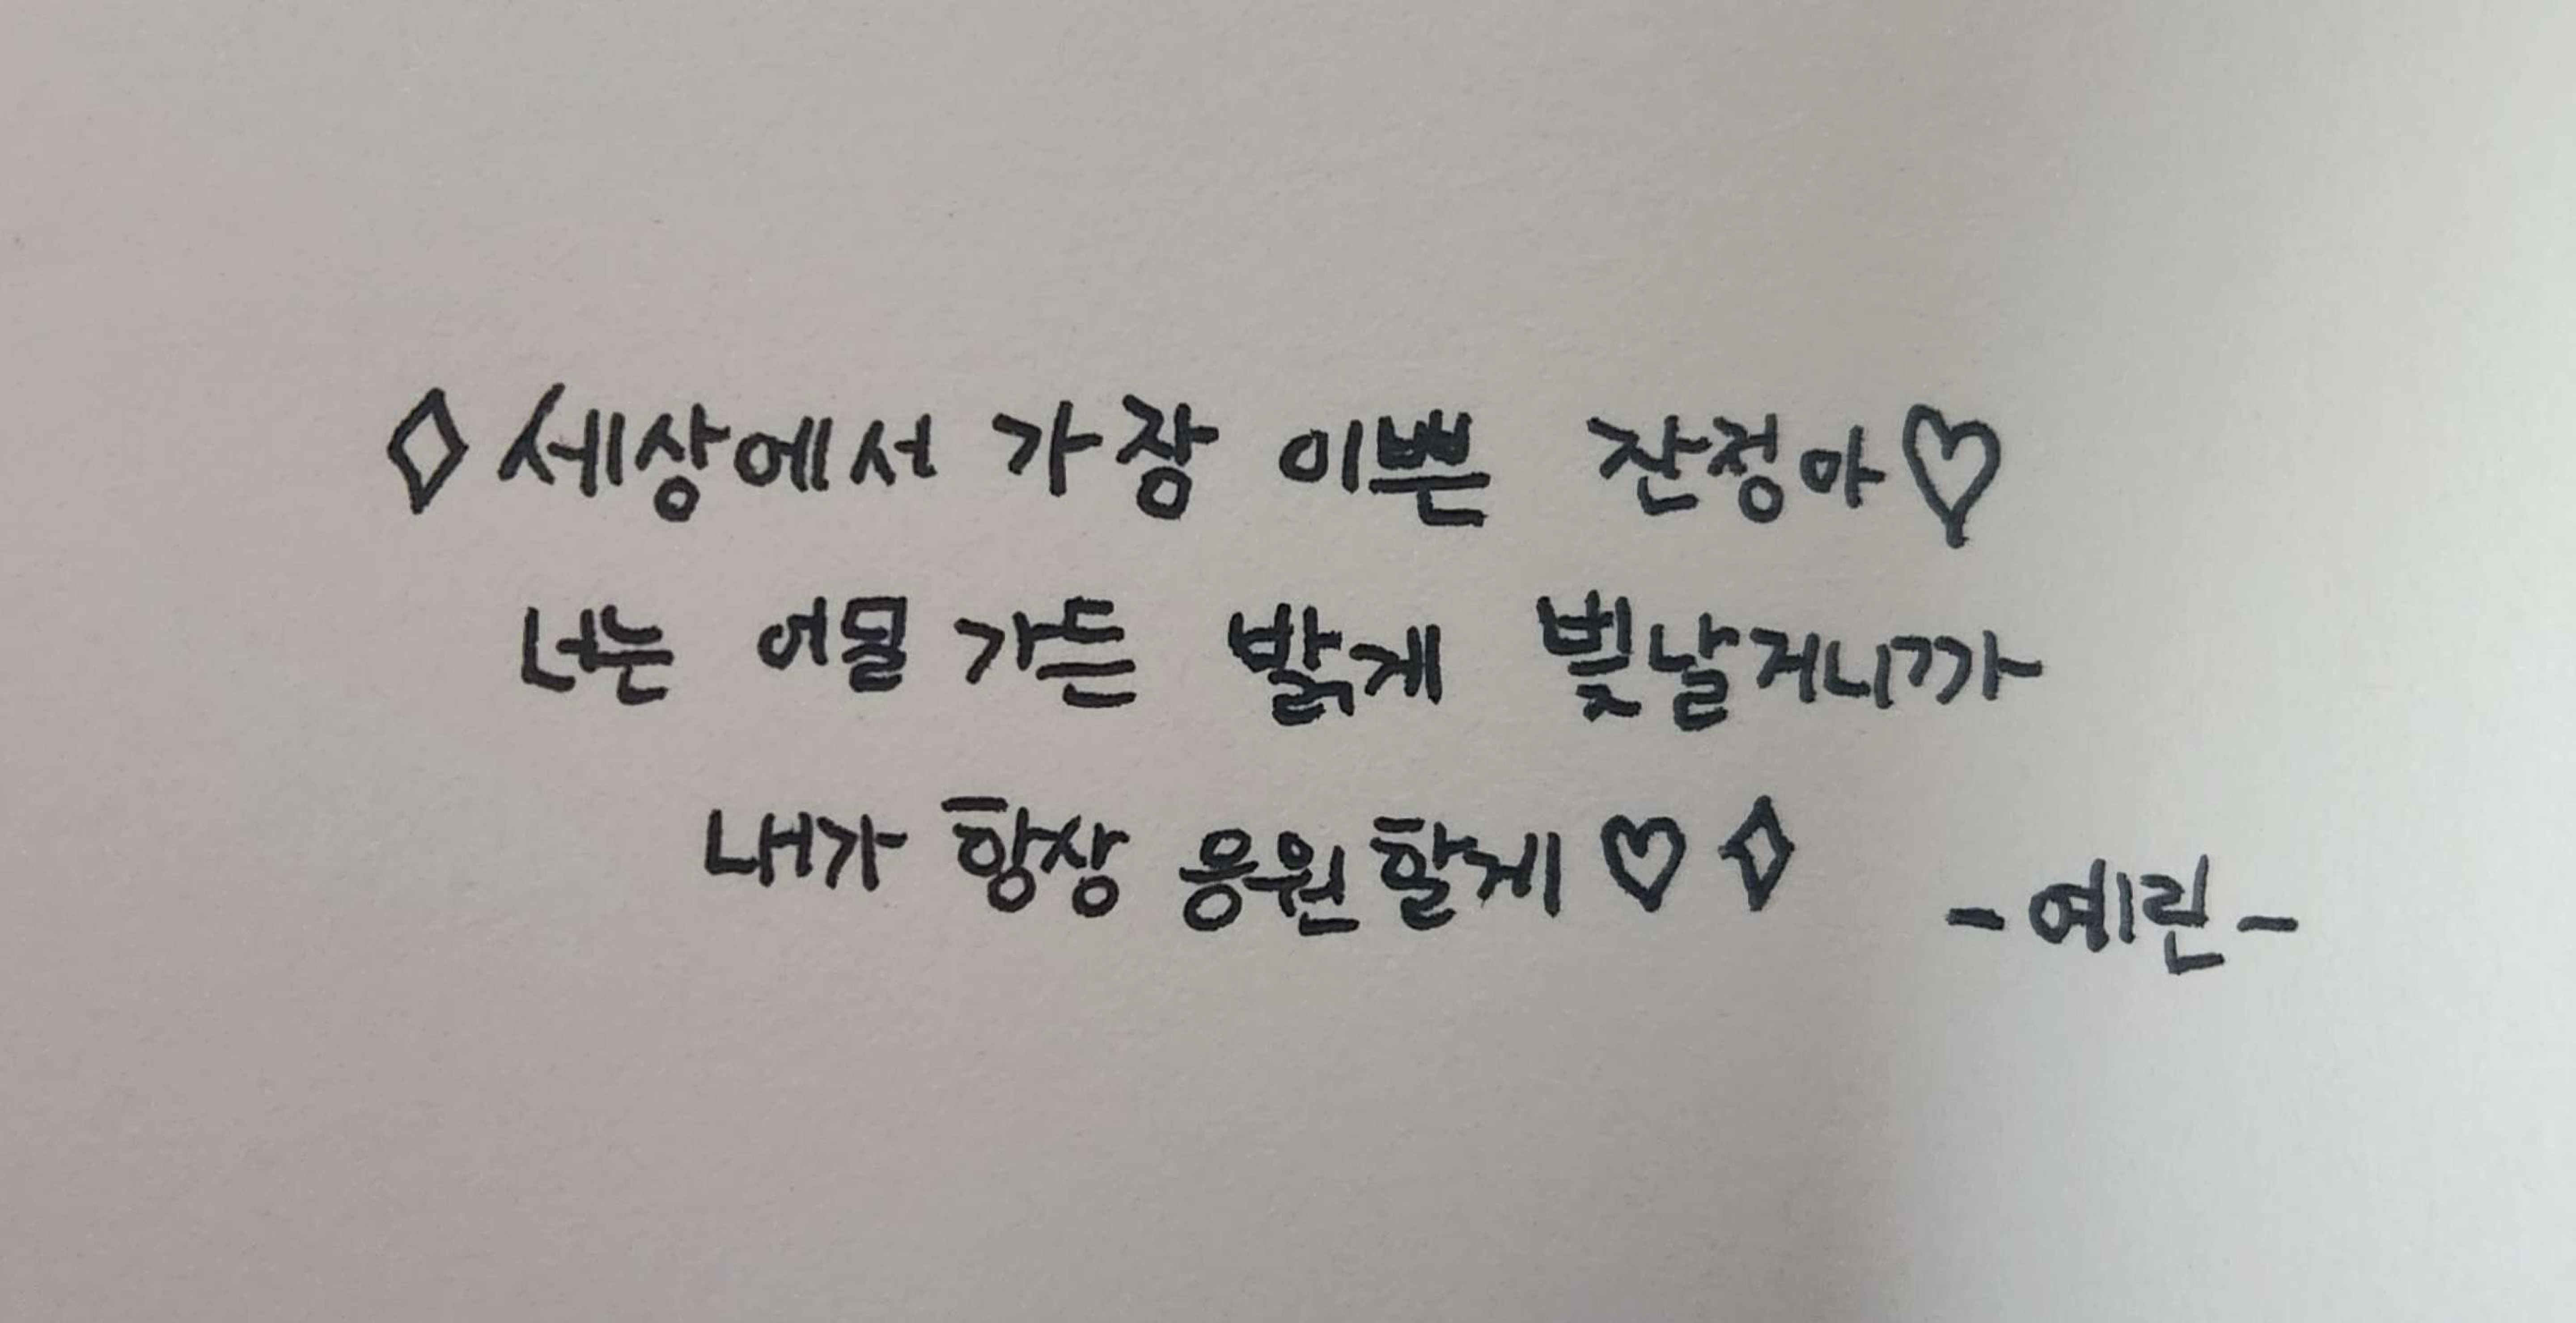 ◇세상에서 가장 이쁜 잔정아♡
너는 어딜 가든 밝게 빛날거니까
내가 항상 응원할게♡◇
-예린-